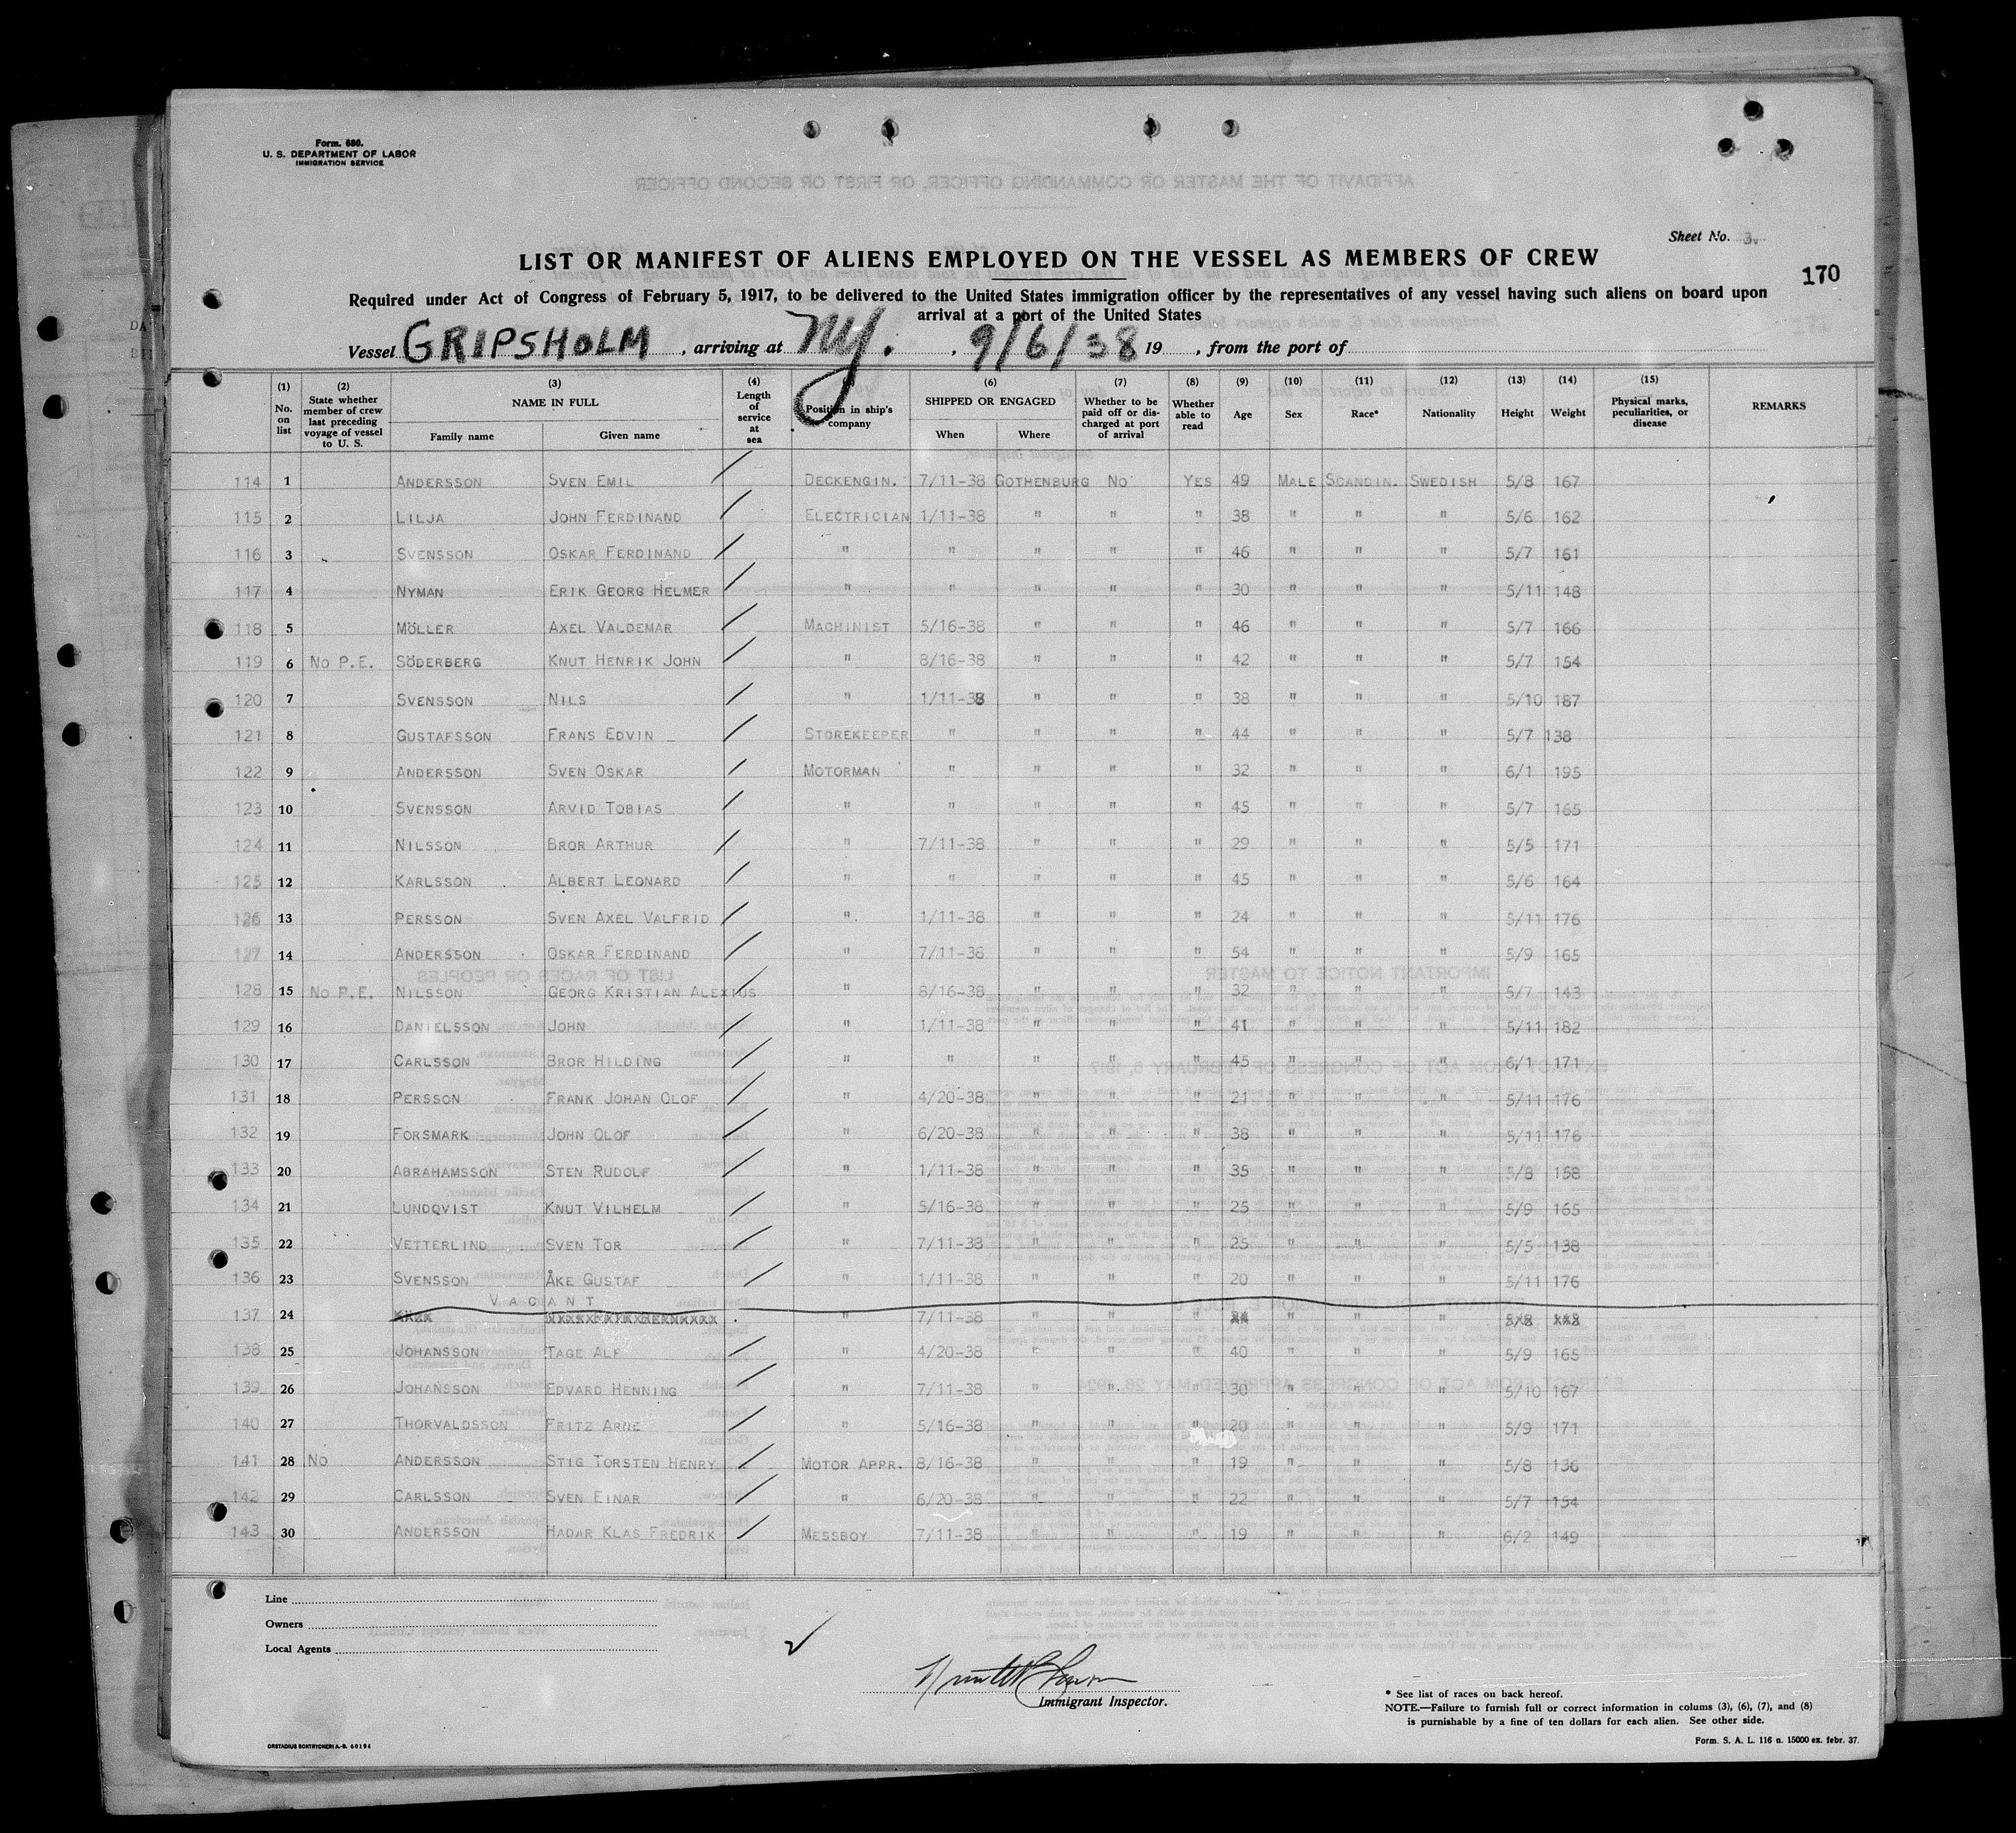 Form. 680.
U. S. DEPARTMENT OF LABOR
IMMIGRATION SERVICE
AFFIDAVIT OF THE MASTER OR COMMANDING OFFICER, OR FIRST OR SECOND OFFICER
Sheet No. 3.
LIST OR MANIFEST OF ALIENS EMPLOYED ON THE VESSEL AS MEMBERS OF CREW
170
Required under Act of Congress of February 5, 1917, to be delivered to the United States immigration officer by the representatives of any vessel having such aliens on board upon
arrival at a port of the United States
Vessel GRIPSHOLM, arriving at NY., 9/6/38 19 , from the port of
(1) No. on list (2) State whether member of crew last preceding voyage of vessel to U. S. (3) NAME IN FULL Family name Given name (4) Length of service at sea Position in ship's company (6) SHIPPED OR ENGAGED When Where (7) Whether to be paid off or discharged at port of arrival (8) Whether able to read (9) Age (10) Sex (11) Race* (12) Nationality (13) Height (14) Weight (15) Physical marks, peculiarities, or disease REMARKS
114 1 ANDERSSON SVEN EMIL DECKENGIN. 7/11-38 GOTHENBURG NO YES 49 MALE SCANDIN. SWEDISH 5/8 167
115 2 LILJA JOHN FERDINAND ELECTRICIAN 1/11-38 " " " 38 " " " 5/6 162
116 3 SVENSSON OSKAR FERDINAND " " " " " 46 " " " 5/7 161
117 4 NYMAN ERIK GEORG HELMER " " " " " 30 " " " 5/11 148
118 5 MÖLLER AXEL VALDEMAR MACHINIST 5/16-38 " " " 46 " " " 5/7 166
119 6 NO P.E. SÖDERBERG KNUT HENRIK JOHN " 8/16-38 " " " 42 " " " 5/7 154
120 7 SVENSSON NILS " 1/11-38 " " " 38 " " " 5/10 187
121 8 GUSTAFSSON FRANS EDVIN STOREKEEPER " " " " 44 " " " 5/7 138
122 9 ANDERSSON SVEN OSKAR MOTORMAN " " " " 32 " " " 6/1 195
123 10 SVENSSON ARVID TOBIAS " " " " " 45 " " " 5/7 165
124 11 NILSSON BROR ARTHUR " 7/11-38 " " " 29 " " " 5/5 171
125 12 KARLSSON ALBERT LEONARD " " " " " 45 " " " 5/6 164
126 13 PERSSON SVEN AXEL VALFRID " 1/11-38 " " " 24 " " " 5/11 176
127 14 ANDERSSON OSKAR FERDINAND " 7/11-38 " " " 54 " " " 5/9 165
128 15 NO P.E. NILSSON GEORG KRISTIAN ALEXIUS " 8/16-38 " " " 32 " " " 5/7 143
129 16 DANIELSSON JOHN " 1/11-38 " " " 41 " " " 5/11 182
130 17 CARLSSON BROR HILDING " " " " " 45 " " " 6/1 171
131 18 PERSSON FRANK JOHAN OLOF " 4/20-38 " " " 21 " " " 5/11 176
132 19 FORSMARK JOHN OLOF " 6/20-38 " " " 38 " " " 5/11 176
133 20 ABRAHAMSSON STEN RUDOLF " 1/11-38 " " " 35 " " " 5/8 158
134 21 LUNDQVIST KNUT VILHELM " 5/16-38 " " " 25 " " " 5/9 165
135 22 VETTERLIND SVEN TOR " 7/11-38 " " " 25 " " " 5/5 138
136 23 SVENSSON ÅKE GUSTAF " 1/11-38 " " " 20 " " " 5/11 176
VACANT
137 24 " 7/11-38 " " " " " "
138 25 JOHANSSON TAGE ALF " 4/20-38 " " " 40 " " " 5/9 165
139 26 JOHANSSON EDVARD HENNING " 7/11-38 " " " 30 " " " 5/10 167
140 27 THORVALDSSON FRITZ ARNE " 5/16-38 " " " 20 " " " 5/9 171
141 28 NO ANDERSSON STIG TORSTEN HENRY MOTOR APPR. 8/16-38 " " " 19 " " " 5/8 136
142 29 CARLSSON SVEN EINAR " 6/20-38 " " " 22 " " " 5/7 154
143 30 ANDERSSON HADAR KLAS FREDRIK MESSBOY 7/11-38 " " " 19 " " " 6/2 149
Line
Owners
Local Agents
Immigrant Inspector.
* See list of races on back hereof.
NOTE.—Failure to furnish full or correct information in colums (3), (6), (7), and (8)
is purnishable by a fine of ten dollars for each alien. See other side.
ORSTADIUS BOKTRYCKERI A.-B. 60194
Form. S. A. L. 116 n. 15000 ex. febr. 37.